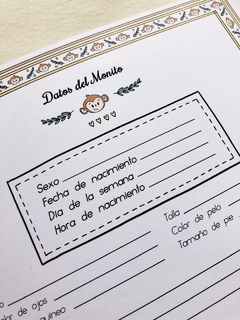 Datos del Monito
Sexo
Fecha de nacimiento
Día de la semana
Hora de nacimiento
Talla
Color de pelo
Tamaño de pie
de ojos